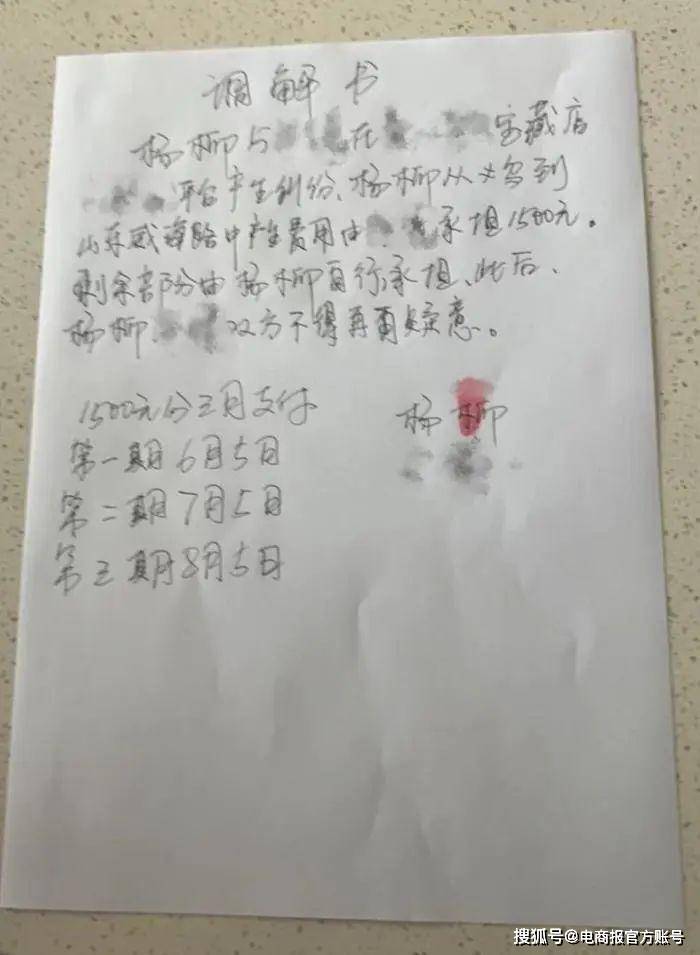 调解书
杨柳与 在 宝藏店
平台产生纠份、杨柳从义乌到
山东威海路中产生费用由 承担1500元。
剩余部份由杨柳自行承担、此后、
杨柳、 双方不得再有疑意。
1500元分三月支付
杨柳
第一期6月5日
第二期7月5日
第三期8月5日
搜狐号@电商报官方账号